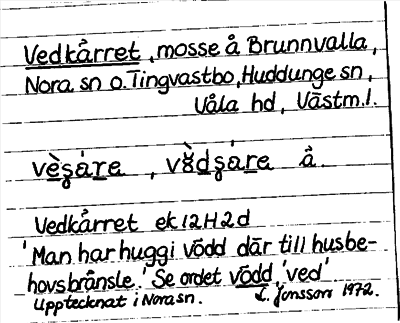 Vedkårret, mosse å Brunnvalla,
Nora sn o. Tingvastbo, Huddunge sn,
Våla hd, Västm.l.
å.
Vedkårret ek 12H2d
'Man har huggi vödd där till husbe-
hovsbränsle.' Se ordet vödd 'ved'
Upptecknat i Nora sn. L. Jonsson 1972.